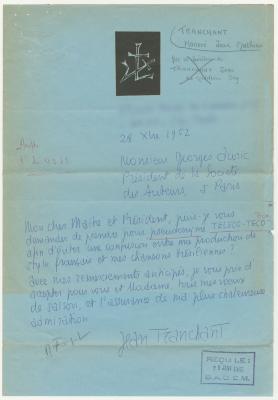 TRANCHANT
28 Xbre 1952
Monsieur Georges Auric
Président de la Société
des Auteurs, à Paris
Mon cher Maître et Président, puis-je vous
demander de prendre pour pseudonyme TELECO-TECO
afin d'éviter une confusion entre ma production de
style français et mes chansons brésiliennes?
Avec mes remerciements anticipés, je vous prie d'
accepter pour vous et Madame, tous mes vœux
de saison, et l'assurance de ma plus chaleureuse
admiration
Jean Tranchant
REÇU LE:
S.A.C.E.M.